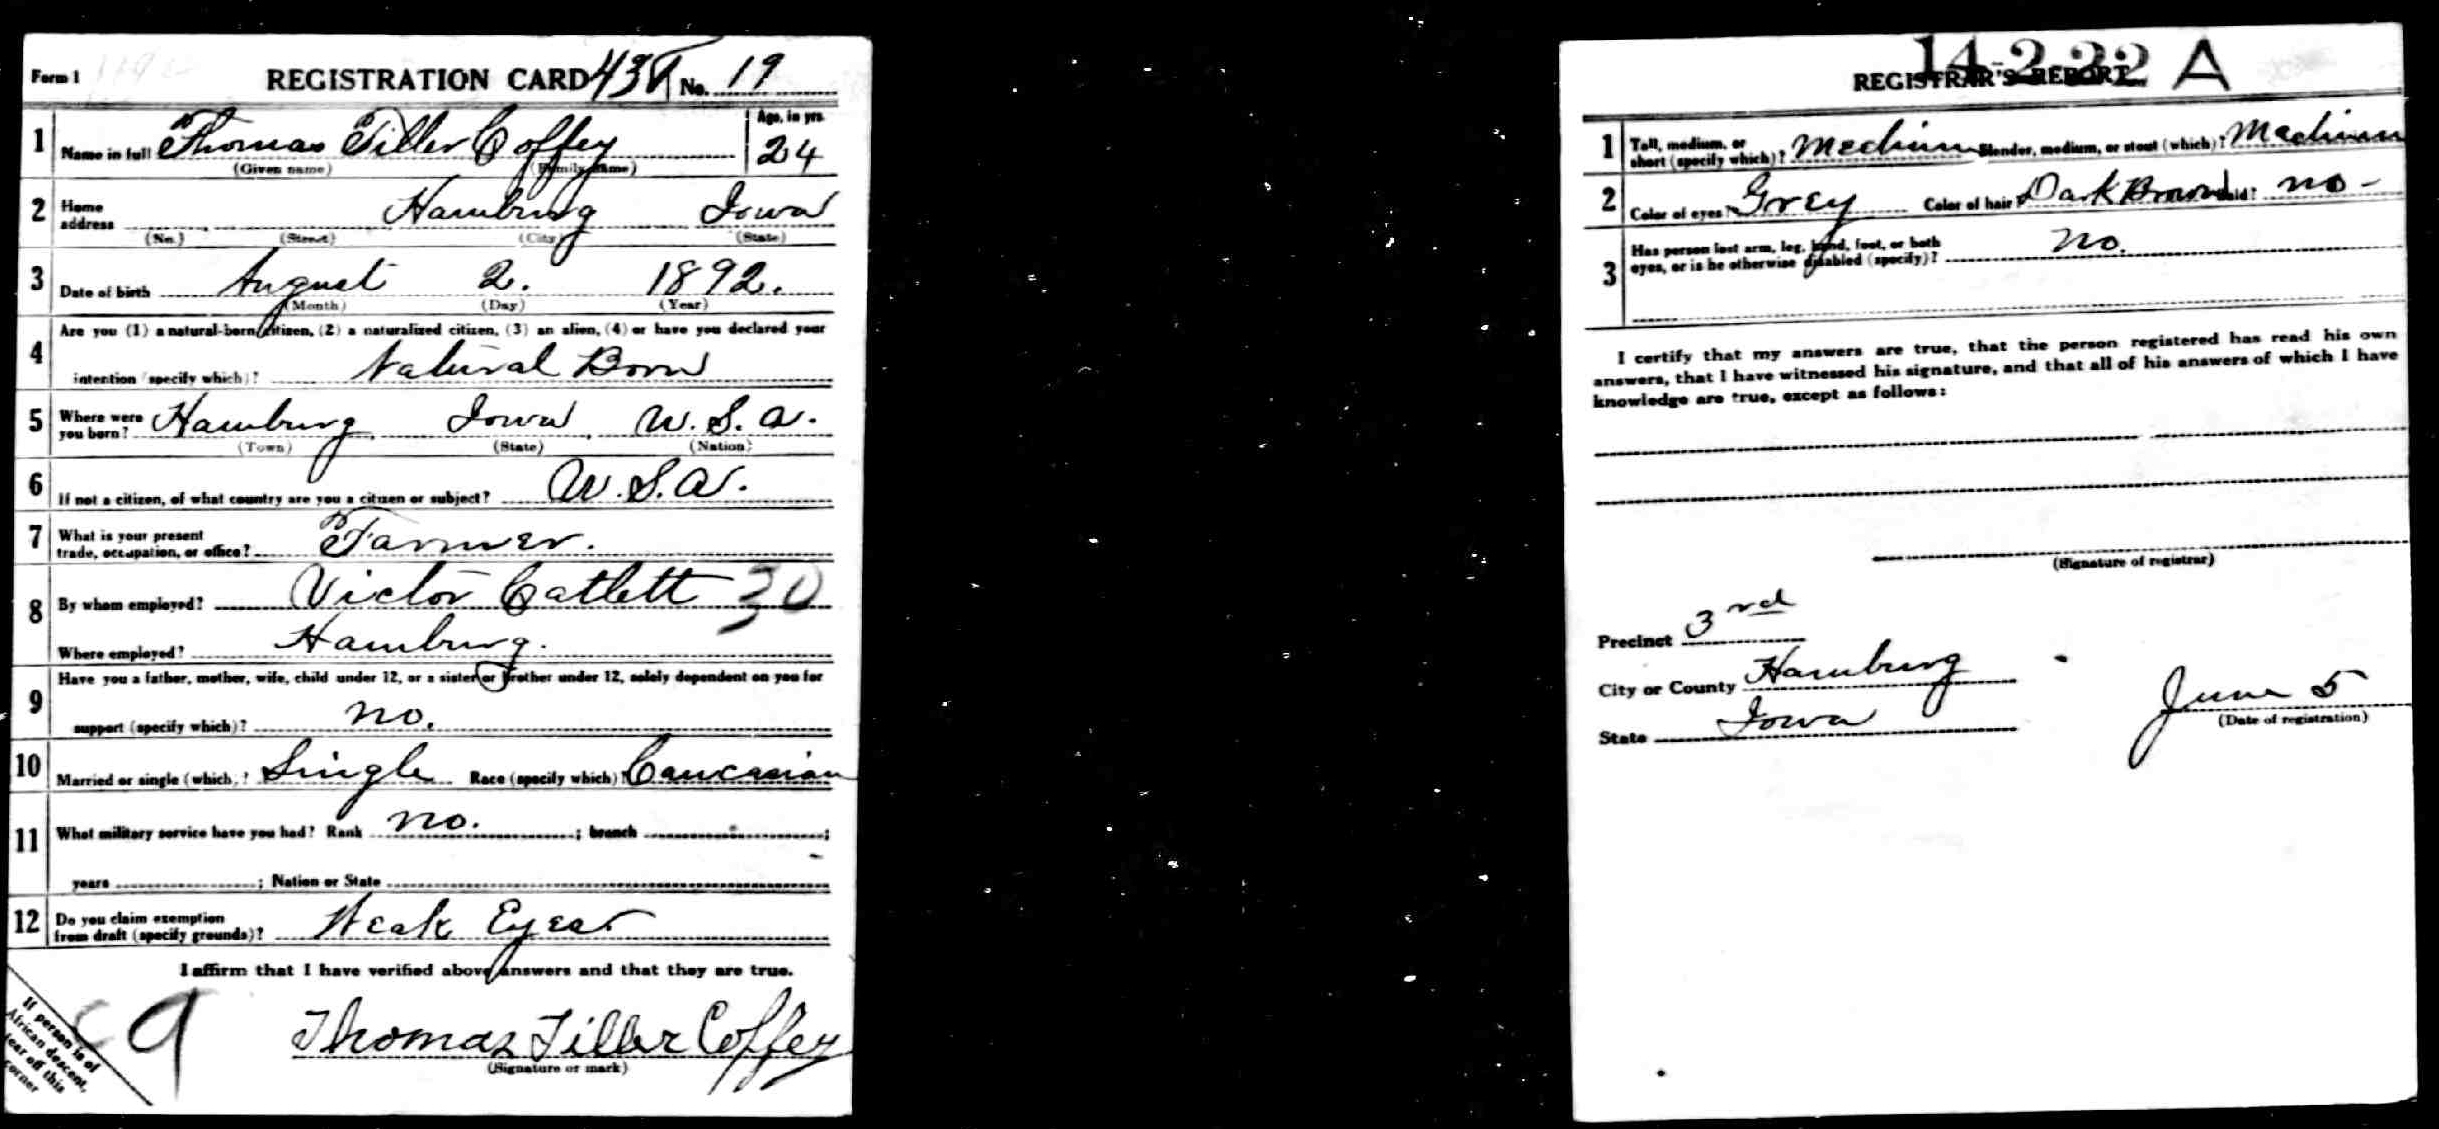 Form 1 REGISTRATION CARD No. 19
1 Name in full Thomas Tiller Coffey Age, in yrs. 24
(Given name) (Family name)
2 Home address Hamburg Iowa
(No.) (Street) (City) (State)
3 Date of birth August 2. 1892.
(Month) (Day) (Year)
Are you (1) a natural-born citizen, (2) a naturalized citizen, (3) an alien, (4) or have you declared your
4 intention (specify which)? Natural Born
5 Where were you born? Hamburg Iowa U.S.A.
(Town) (State) (Nation)
6 If not a citizen, of what country are you a citizen or subject? U.S.A.
7 What is your present trade, occupation, or office? Farmer.
8 By whom employed? Victor Catlett 30
Where employed? Hamburg.
9 Have you a father, mother, wife, child under 12, or a sister or brother under 12, solely dependent on you for
support (specify which)? no.
10 Married or single (which)? Single Race (specify which)? Caucasian
11 What military service have you had? Rank no. ; branch ;
years ; Nation or State
12 Do you claim exemption from draft (specify grounds)? Weak Eyes
I affirm that I have verified above answers and that they are true.
9
Thomas Tiller Coffey
(Signature or mark)
If person is of
African descent,
tear off this
corner
14-2-22 A
REGISTRAR'S REPORT
1 Tall, medium, or short (specify which)? Medium Slender, medium, or stout (which)? Medium
2 Color of eyes? Grey Color of hair? Dark Brown Bald? no -
3 Has person lost arm, leg, hand, foot, or both
eyes, or is he otherwise disabled (specify)? no.
I certify that my answers are true, that the person registered has read his own
answers, that I have witnessed his signature, and that all of his answers of which I have
knowledge are true, except as follows:
(Signature of registrar)
Precinct 3rd
City or County Hamburg
State Iowa
June 5
(Date of registration)